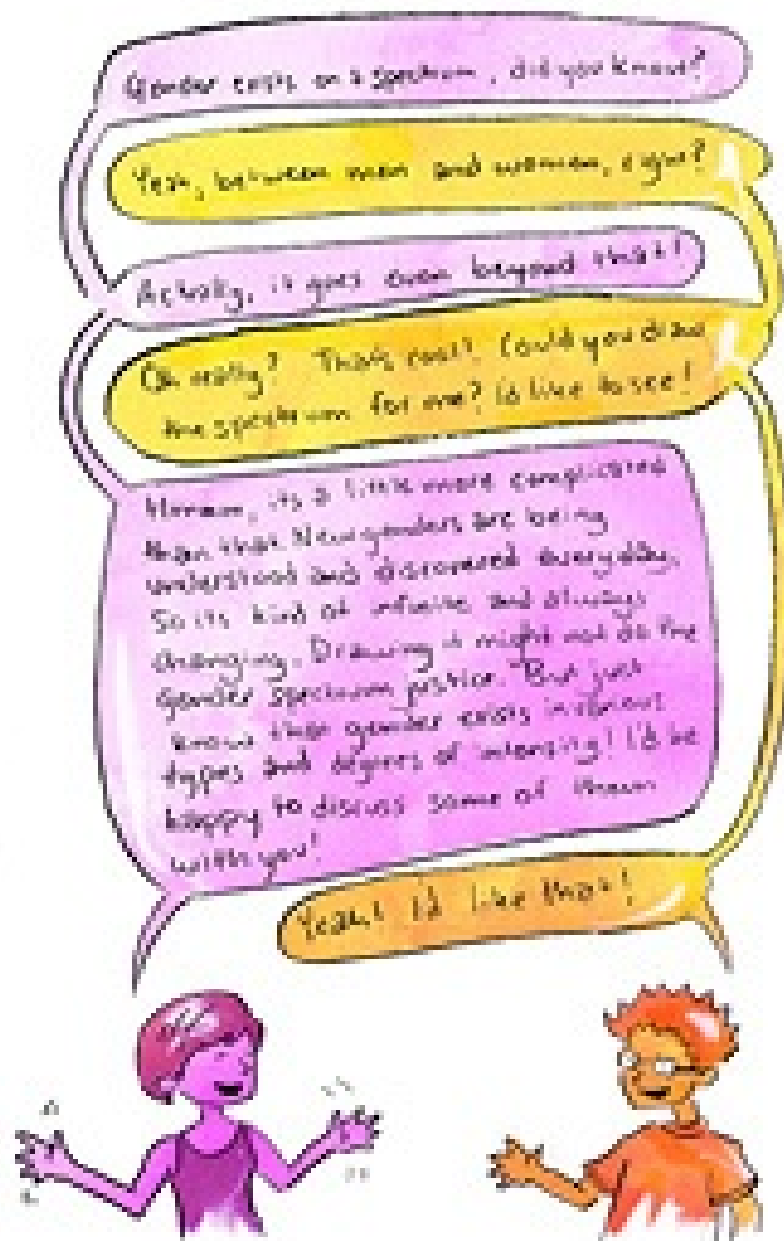 Gender exists on a spectrum, did you know?
Yeah, between men and women, right?
Actually, it goes even beyond that!
Oh really? That's cool! Could you draw
the spectrum for me? I'd like to see!
Hmmm, its a little more complicated
than that. New genders are being
understood and discovered everyday.
So its kind of infinite and always
changing. Drawing it might not do the
gender spectrum justice. But just
know that gender exists in various
types and degrees of intensity! I'd be
happy to discuss some of them
with you!
Yeah! I'd like that!